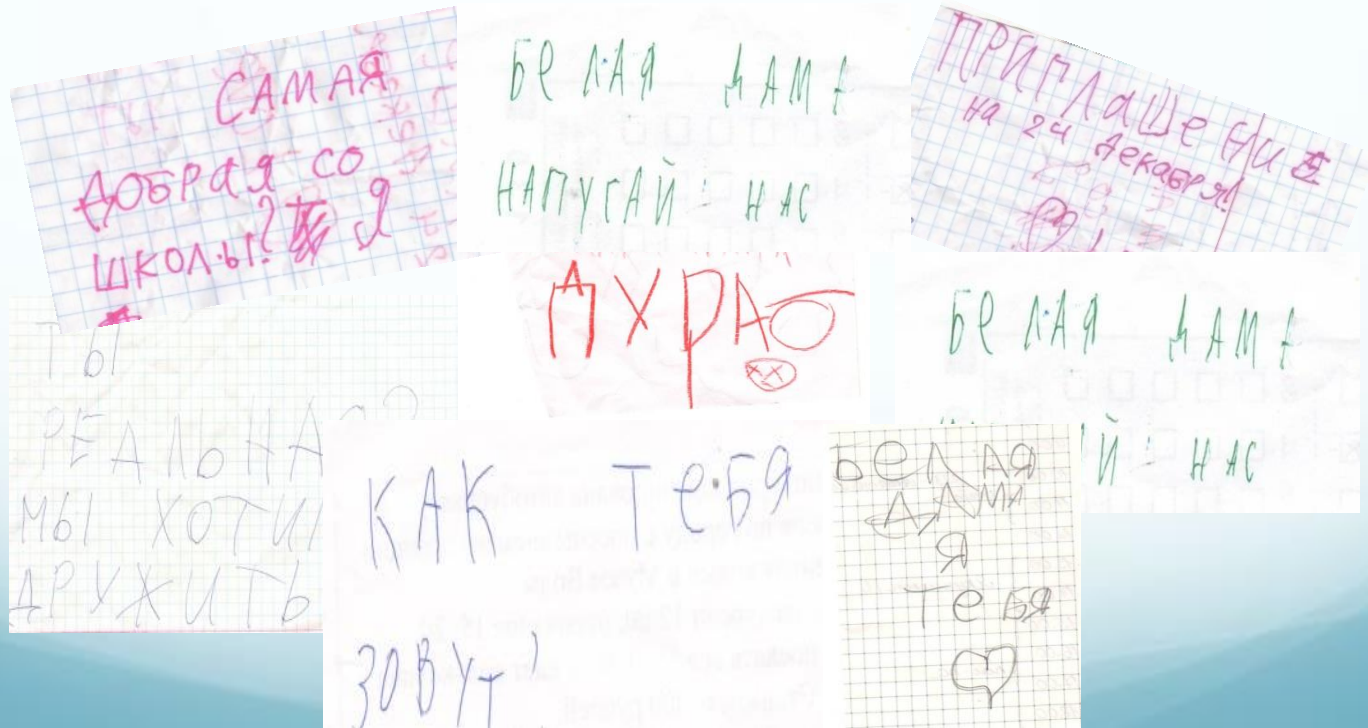 САМАЯ
ДОБРАЯ СО
ШКОЛЫ? Я
БеЛАЯ ДАМА
НАПУГАЙ НАС
на 24 декабря!
ТЫ
РЕАЛЬНАЯ?
МЫ ХОТИ
ДРУЖИТЬ
БеЛАЯ ДАМА
Й НАС
КАК ТеБЯ
ЗОВУТ?
БеЛАЯ
ДАМА
Я
ТеБЯ